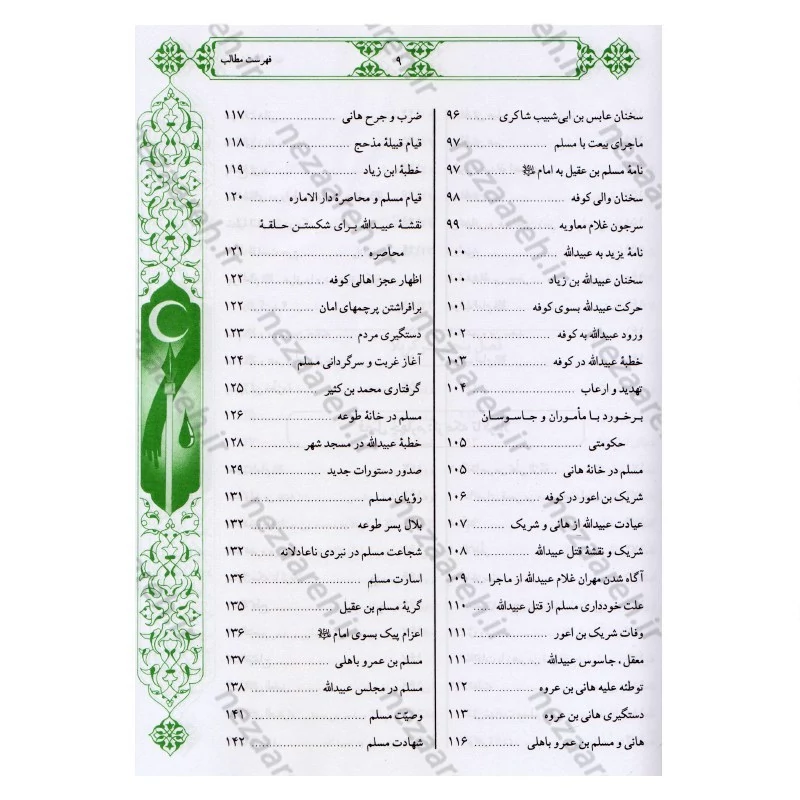 فهرست مطالب
۹
سخنان عابس بن ابی‌شبیب شاکری ........ ۹۶
ماجرای بیعت با مسلم ........ ۹۷
نامهٔ مسلم بن عقیل به امام ﷺ ........ ۹۷
سخنان والی کوفه ........ ۹۸
سرجون غلام معاویه ........ ۹۹
نامهٔ یزید به عبیدالله ........ ۱۰۰
سخنان عبیدالله بن زیاد ........ ۱۰۰
حرکت عبیدالله بسوی کوفه ........ ۱۰۱
ورود عبیدالله به کوفه ........ ۱۰۲
خطبهٔ عبیدالله در کوفه ........ ۱۰۳
تهدید و ارعاب ........ ۱۰۴
برخورد با مأموران و جاسوسان
حکومتی ........ ۱۰۵
مسلم در خانهٔ هانی ........ ۱۰۵
شریک بن اعور در کوفه ........ ۱۰۶
عیادت عبیدالله از هانی و شریک ........ ۱۰۷
شریک و نقشهٔ قتل عبیدالله ........ ۱۰۸
آگاه شدن مهران غلام عبیدالله از ماجرا ۱۰۹
علت خودداری مسلم از قتل عبیدالله ........ ۱۱۰
وفات شریک بن اعور ........ ۱۱۱
معقل، جاسوس عبیدالله ........ ۱۱۱
توطئه علیه هانی بن عروه ........ ۱۱۲
دستگیری هانی بن عروه ........ ۱۱۳
هانی و مسلم بن عمرو باهلی ........ ۱۱۶
ضرب و جرح هانی ........ ۱۱۷
قیام قبیلهٔ مذحج ........ ۱۱۸
خطبهٔ ابن زیاد ........ ۱۱۹
قیام مسلم و محاصرهٔ دار الاماره ........ ۱۲۰
نقشهٔ عبیدالله برای شکستن حلقهٔ
محاصره ........ ۱۲۱
اظهار عجز اهالی کوفه ........ ۱۲۲
برافراشتن پرچمهای امان ........ ۱۲۲
دستگیری مردم ........ ۱۲۳
آغاز غربت و سرگردانی مسلم ........ ۱۲۴
گرفتاری محمد بن کثیر ........ ۱۲۵
مسلم در خانهٔ طوعه ........ ۱۲۶
خطبهٔ عبیدالله در مسجد شهر ........ ۱۲۸
صدور دستورات جدید ........ ۱۲۹
رؤیای مسلم ........ ۱۳۱
بلال پسر طوعه ........ ۱۳۲
شجاعت مسلم در نبردی ناعادلانه ........ ۱۳۲
اسارت مسلم ........ ۱۳۴
گریهٔ مسلم بن عقیل ........ ۱۳۵
اعزام پیک بسوی امام ﷺ ........ ۱۳۶
مسلم بن عمرو باهلی ........ ۱۳۷
مسلم در مجلس عبیدالله ........ ۱۳۸
وصیّت مسلم ........ ۱۴۱
شهادت مسلم ........ ۱۴۲
nezaareh.ir